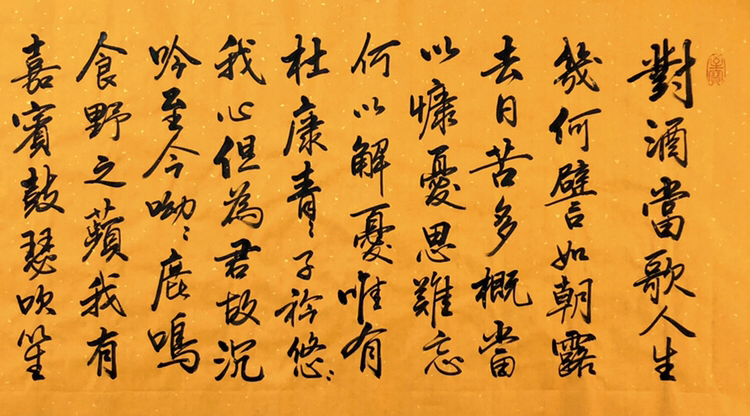 對酒當歌人生
幾何譬如朝露
去日苦多概當
以慷憂思難忘
何以解憂唯有
杜康青〻子衿悠〻
我心但為君故沉
吟至今呦〻鹿鳴
食野之蘋我有
嘉賓鼓瑟吹笙